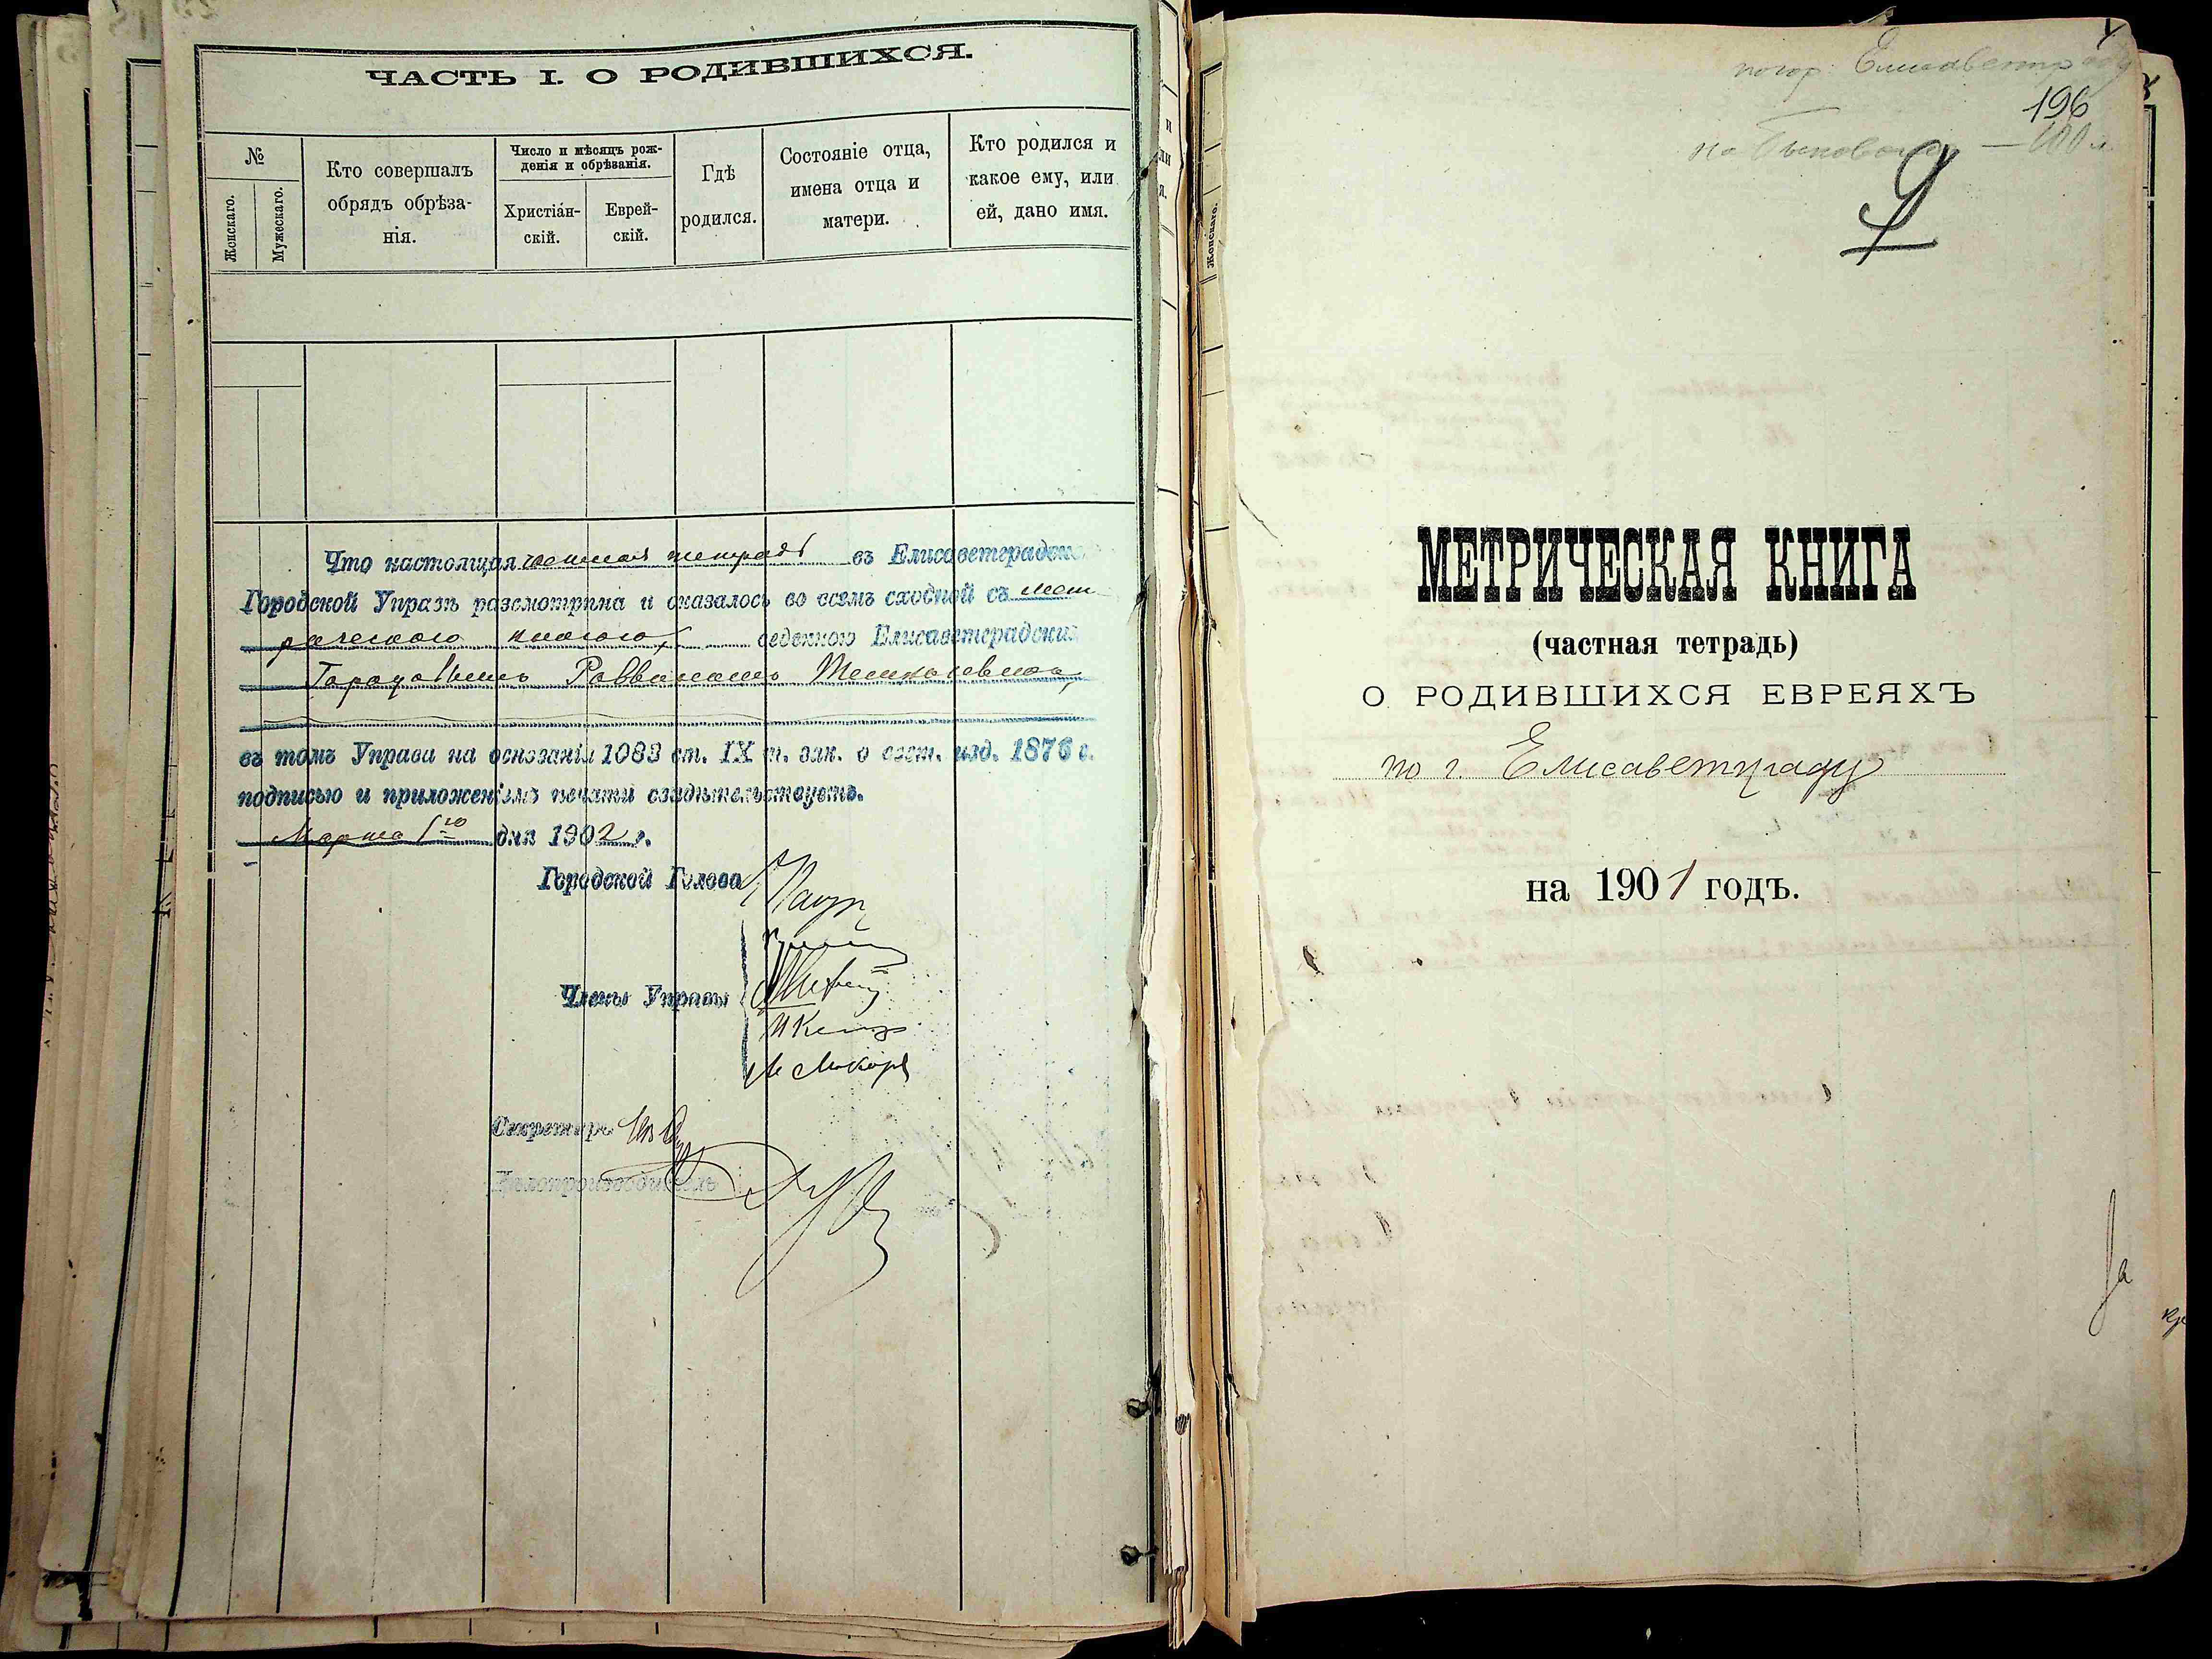 ЧАСТЬ I. О РОДИВШИХСЯ.
№
Женскаго.
Мужескаго.
Кто совершалъ
обрядъ обрѣза-
нія.
Число и мѣсяцъ рож-
денія и обрѣзанія.
Христіáн-
скій.
Еврей-
скій.
Гдѣ
родился.
Состояніе отца,
имена отца и
матери.
Кто родился и
какое ему, или
ей, дано имя.
Что настоящая тетрадь въ Елисаветградской
Городской Управѣ разсмотрѣна и оказалось во всемъ сходной съ мет
рическою книгою, веденною Елисаветградскимъ
Городовымъ Раввиномъ
въ томъ Управа на основаніи 1083 ст. IX т. зак. о сост. изд. 1876 г.
подписью и приложеніемъ печати свидѣтельствуетъ.
Марта 1го дня 1902 г.
Городской Голова
Члены Управы
Секретарь
Дѣлопроизводитель
Женскаго.
гор. Елисаветград
196
9
МЕТРИЧЕСКАЯ КНИГА
(частная тетрадь)
О РОДИВШИХСЯ ЕВРЕЯХЪ
по г. Елисаветграду
на 1901 годъ.